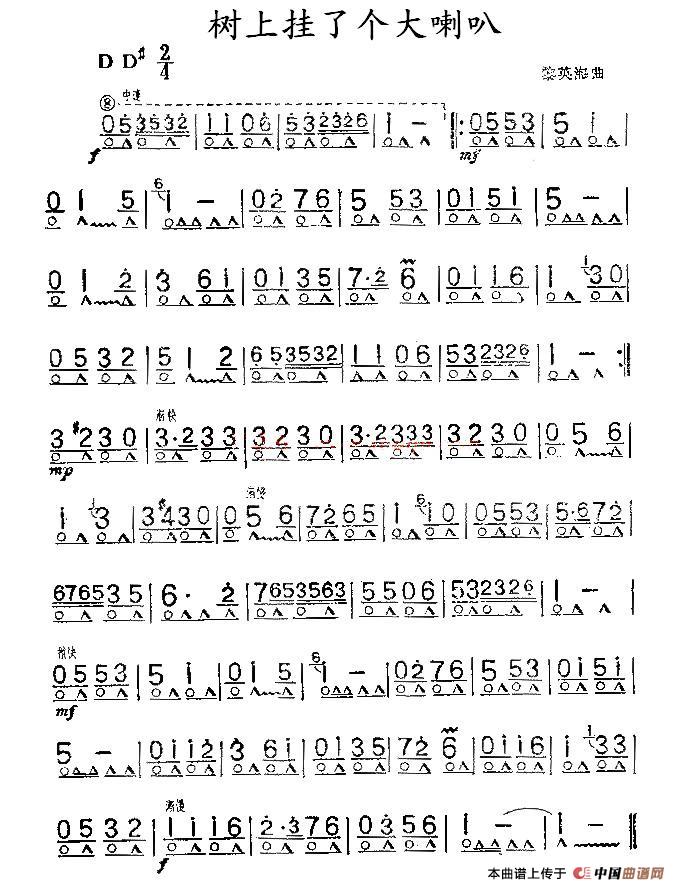 树上挂了个大喇叭
D D♯ 2/4
黎英海曲
⑧ 中速
0 5 3 5 3 2 | i i 0 6 | 5 3 2 3 2 6 | i – |: 0 5 5 3 | 5 i |
f mf
0 i 5 | 6 i – | 0 2 7 6 | 5 5 3 | 0 i 5 i | 5 – |
0 i 2 | 3 6 i | 0 i 3 5 | 7 · 2 6 | 0 i i 6 | i i 3 0 |
0 5 3 2 | 5 i 2 | 6 5 3 5 3 2 | i i 0 6 | 5 3 2 3 2 6 | i – :|
稍快
3 ♯2 3 0 | 3 · 2 3 3 | 3 2 3 0 | 3 · 2 3 3 3 | 3 2 3 0 | 0 5 6 |
mp
稍慢
i i 3 | 3 ♯4 3 0 | 0 5 6 | 7 2 6 5 | i 6 i 0 | 0 5 5 3 | 5 · 6 7 2 |
6 7 6 5 3 5 | 6 · 2 | 7 6 5 3 5 6 3 | 5 5 0 6 | 5 3 2 3 2 6 | i – |
稍快
0 5 5 3 | 5 i | 0 i 5 | 6 i – | 0 2 7 6 | 5 5 3 | 0 i 5 i |
mf
5 – | 0 i i 2 | 3 6 i | 0 i 3 5 | 7 2 6 | 0 i i 6 | i i 3 3 |
渐慢
0 5 3 2 | i i i 6 | 2 · 3 7 6 | 0 3 5 6 | i – | i – ‖
f
本曲谱上传于 中国曲谱网